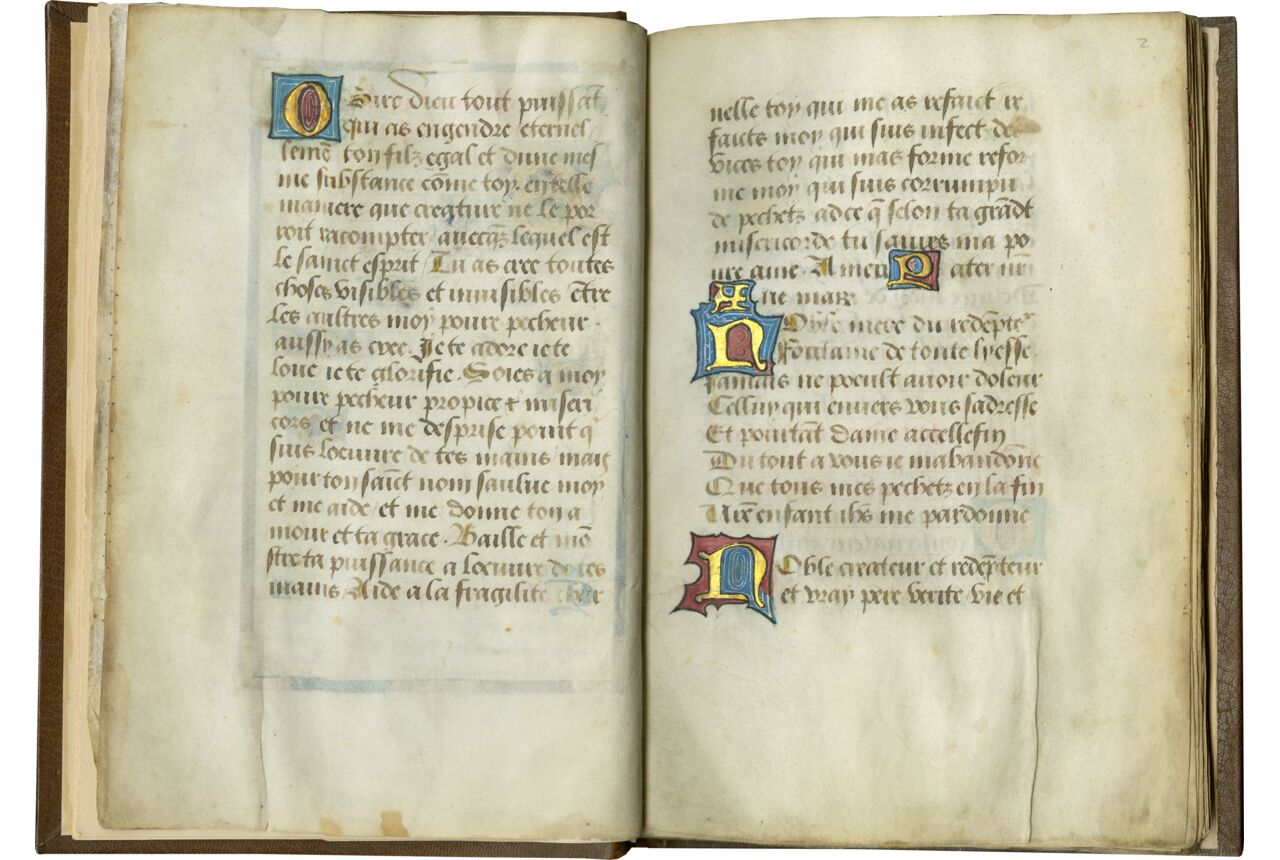 O Sire dieu tout puissāt
qui as engendre eternel
lemēt ton filz egal et dune mes
me substance cōme toy. en telle
maniere que creature ne le por
roit racompter auecqz lequel est
le sainct esprit / Tu as cree toutes
choses visibles et inuisibles Et̄re
les aultres moy poure pecheur
aussy as cree. Je te adore ie te
loue ie te glorifie. Soies a moy
poure pecheur propice & miseri
cors / et ne me desprise point q̄
suis loeuure de tes mains / mais
pour ton saīct nom saulue moy
et me aide / et me donne ton a
mour et ta grace. Baille et mō
stre ta puissance a loeuure de tes
mains / Aide a la fragilite char
2
nelle toy qui me as refaict re
faicts moy qui suis infect de
vices toy qui mas forme refor
me moy qui suis corrumpu
de pechetz adce q̄ selon ta grādt
misericorde tu saulues ma po
ure ame. Amen Pater nr̄
Aue mar.
NOble mere du redēpte
Fontaine de toute lyesse.
Jamais ne poeult auoir doleur
Celluy qui enuers vous sadresse
Et pourtāt dame accellefin
Du tout a vous ie mabandōne
Que tous mes pechetz en la fin
Vr̄e enfant ihs me pardonne
NOble createur et redēpteur
et vray pere verite vie et